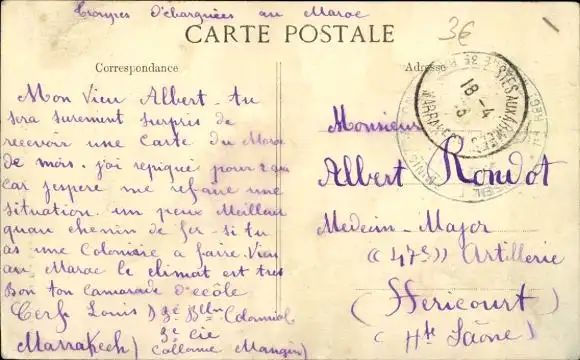 Troupes Débarquées au Maroc
3€
CARTE POSTALE
Correspondance
Adresse
Mon Vieu Albert - tu
sera surement surpris de
recevoir une Carte du Maroc
de mois. j'ai repiqué pour 2 ans
car j'espere me refaire une
situation un peux Meilleur
quau chemin de fer - si tu
as une Colonisie a faire. Vieu
au Maroc le climat est tres
Bon ton camarade d'ecôle
Cerf Louis) 3e Blln Colonnial
3e cie
Marrakech) Collonne Mangin)
18-4
13
MARRAKECH
POSTES AUX ARMEES
Monsieur
Albert Rondot
Medecin-Major
(« 47e)) Artillerie
(Hericourt)
(Hte Saône)